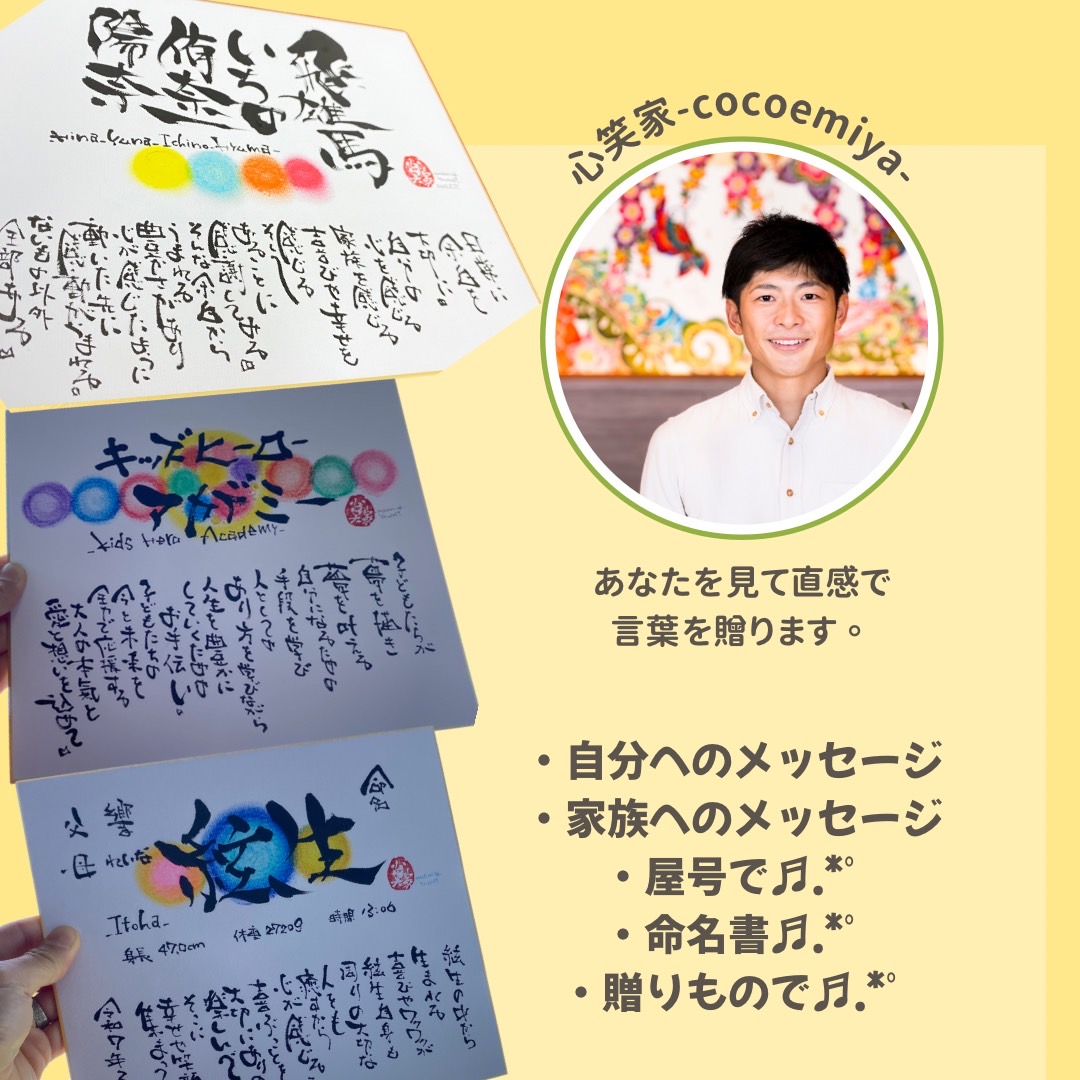 心笑家-cocoemiya-
あなたを見て直感で
言葉を贈ります。
・自分へのメッセージ
・家族へのメッセージ
・屋号で♬.*°
・命名書♬.*°
・贈りもので♬.*°
飛雄馬
いちの
侑奈
陽奈
日常に
大切に。
自分の
心を感じる
家族を感じる
喜びや幸せを
感じる
そして
あることに
感謝してみる。
そんな今日から
うまれる
豊かさがあり
心が感じたように
動いた先に
感動がうまれる。
ないもの以外
全部ある。
キッズヒーロー
アカデミー
子どもたちが
夢を描き
夢を叶える
自分になるための
手段を学び
人としての
あり方を学びながら
人生を豊かに
していくための
お手伝い。
子どもたちの
今と未来を
全力で応援する
大人の本気と
愛と想いを込めて。
命名
絃生
父 響
母 れいな
-Itoha-
身長 47.0cm
体重 2720g
時間 13:06
絃生の中から
生まれる
喜びやワクワクが
絃生自身も
周りの大切な
人をも
癒すだろう
心が感じる